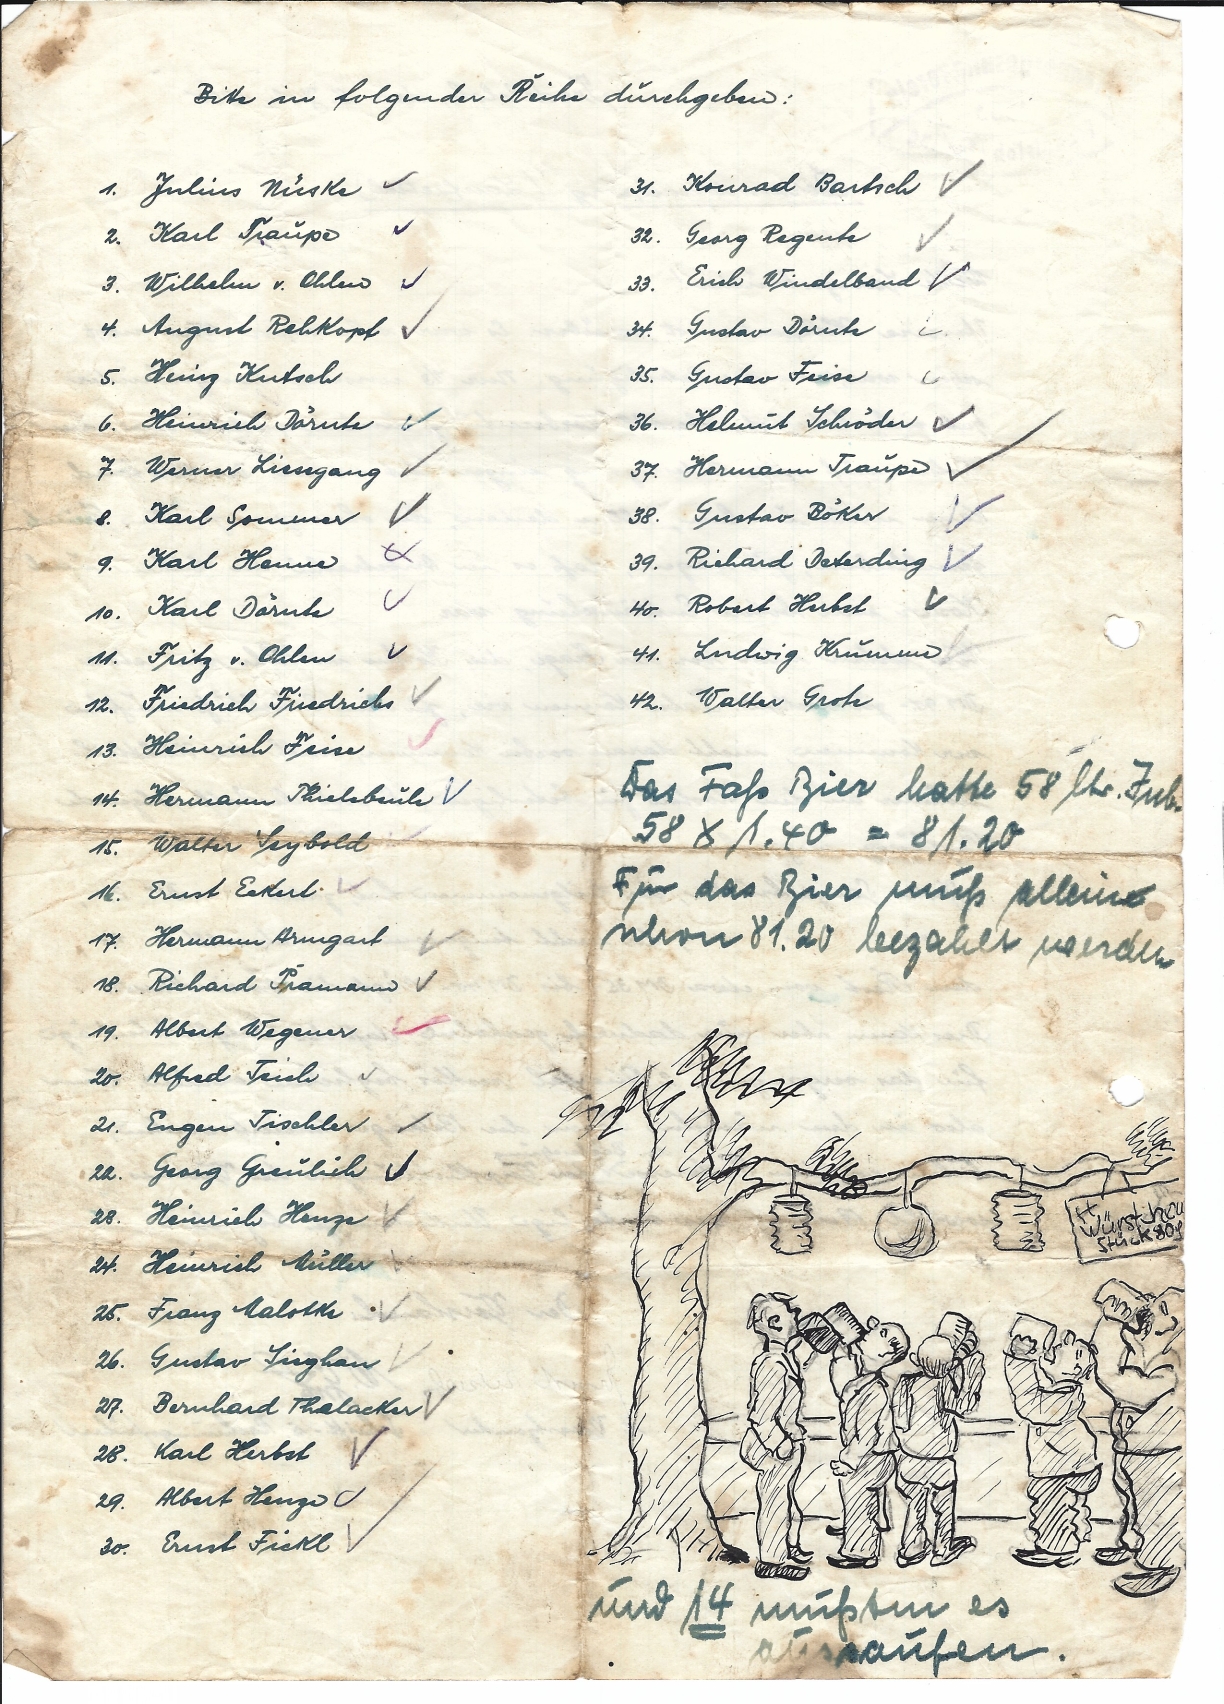 Bitte in folgender Reihe durchgeben:
1. Julius Nüske
2. Karl Traupe
3. Wilhelm v. Ohlen
4. August Rehkopf
5. Heinz Kutsch
6. Heinrich Dörnte
7. Werner Liesegang
8. Karl Sommer
9. Karl Henne
10. Karl Dörnte
11. Fritz v. Ohlen
12. Friedrich Friedrichs
13. Heinrich Feise
14. Hermann Thielebeule
15. Walter Seybold
16. Ernst Eckert
17. Hermann Armgart
18. Richard Pramann
19. Albert Wegener
20. Alfred
21. Eugen Tischler
22. Georg Greulich
23. Heinrich Henze
24. Heinrich Müller
25. Franz Malottke
26. Gustav Sieghan
27. Bernhard Thalacker
28. Karl Herbst
29. Albert Henze
30. Ernst Fickl
31. Konrad Bartsch
32. Georg Regente
33. Erich Windelband
34. Gustav Dörnte
35. Gustav Feise
36. Helmut Schröder
37. Hermann Traupe
38. Gustav Böker
39. Richard Deterding
40. Robert Herbst
41. Ludwig Krumme
42. Walter Grote
Das Faß Bier hatte 58 ltr. Inh.
58 x 1.40 = 81.20
Für das Bier muß alleine
schon 81.20 bezahlt werden
Würstchen
Stück 80
und 14 mußten es
aussaufen.